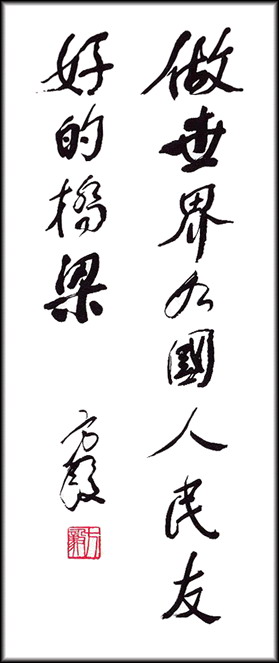 做世界各國人民友
好的橋梁
方毅
方毅